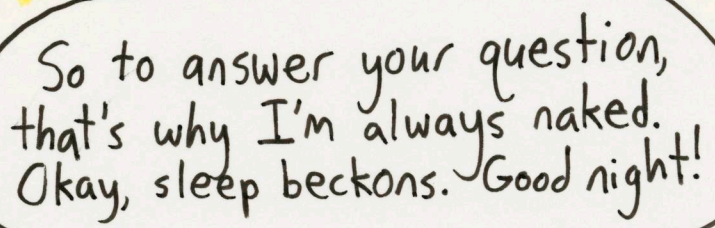 So to answer your question,
that's why I'm always naked.
Okay, sleep beckons. Good night!